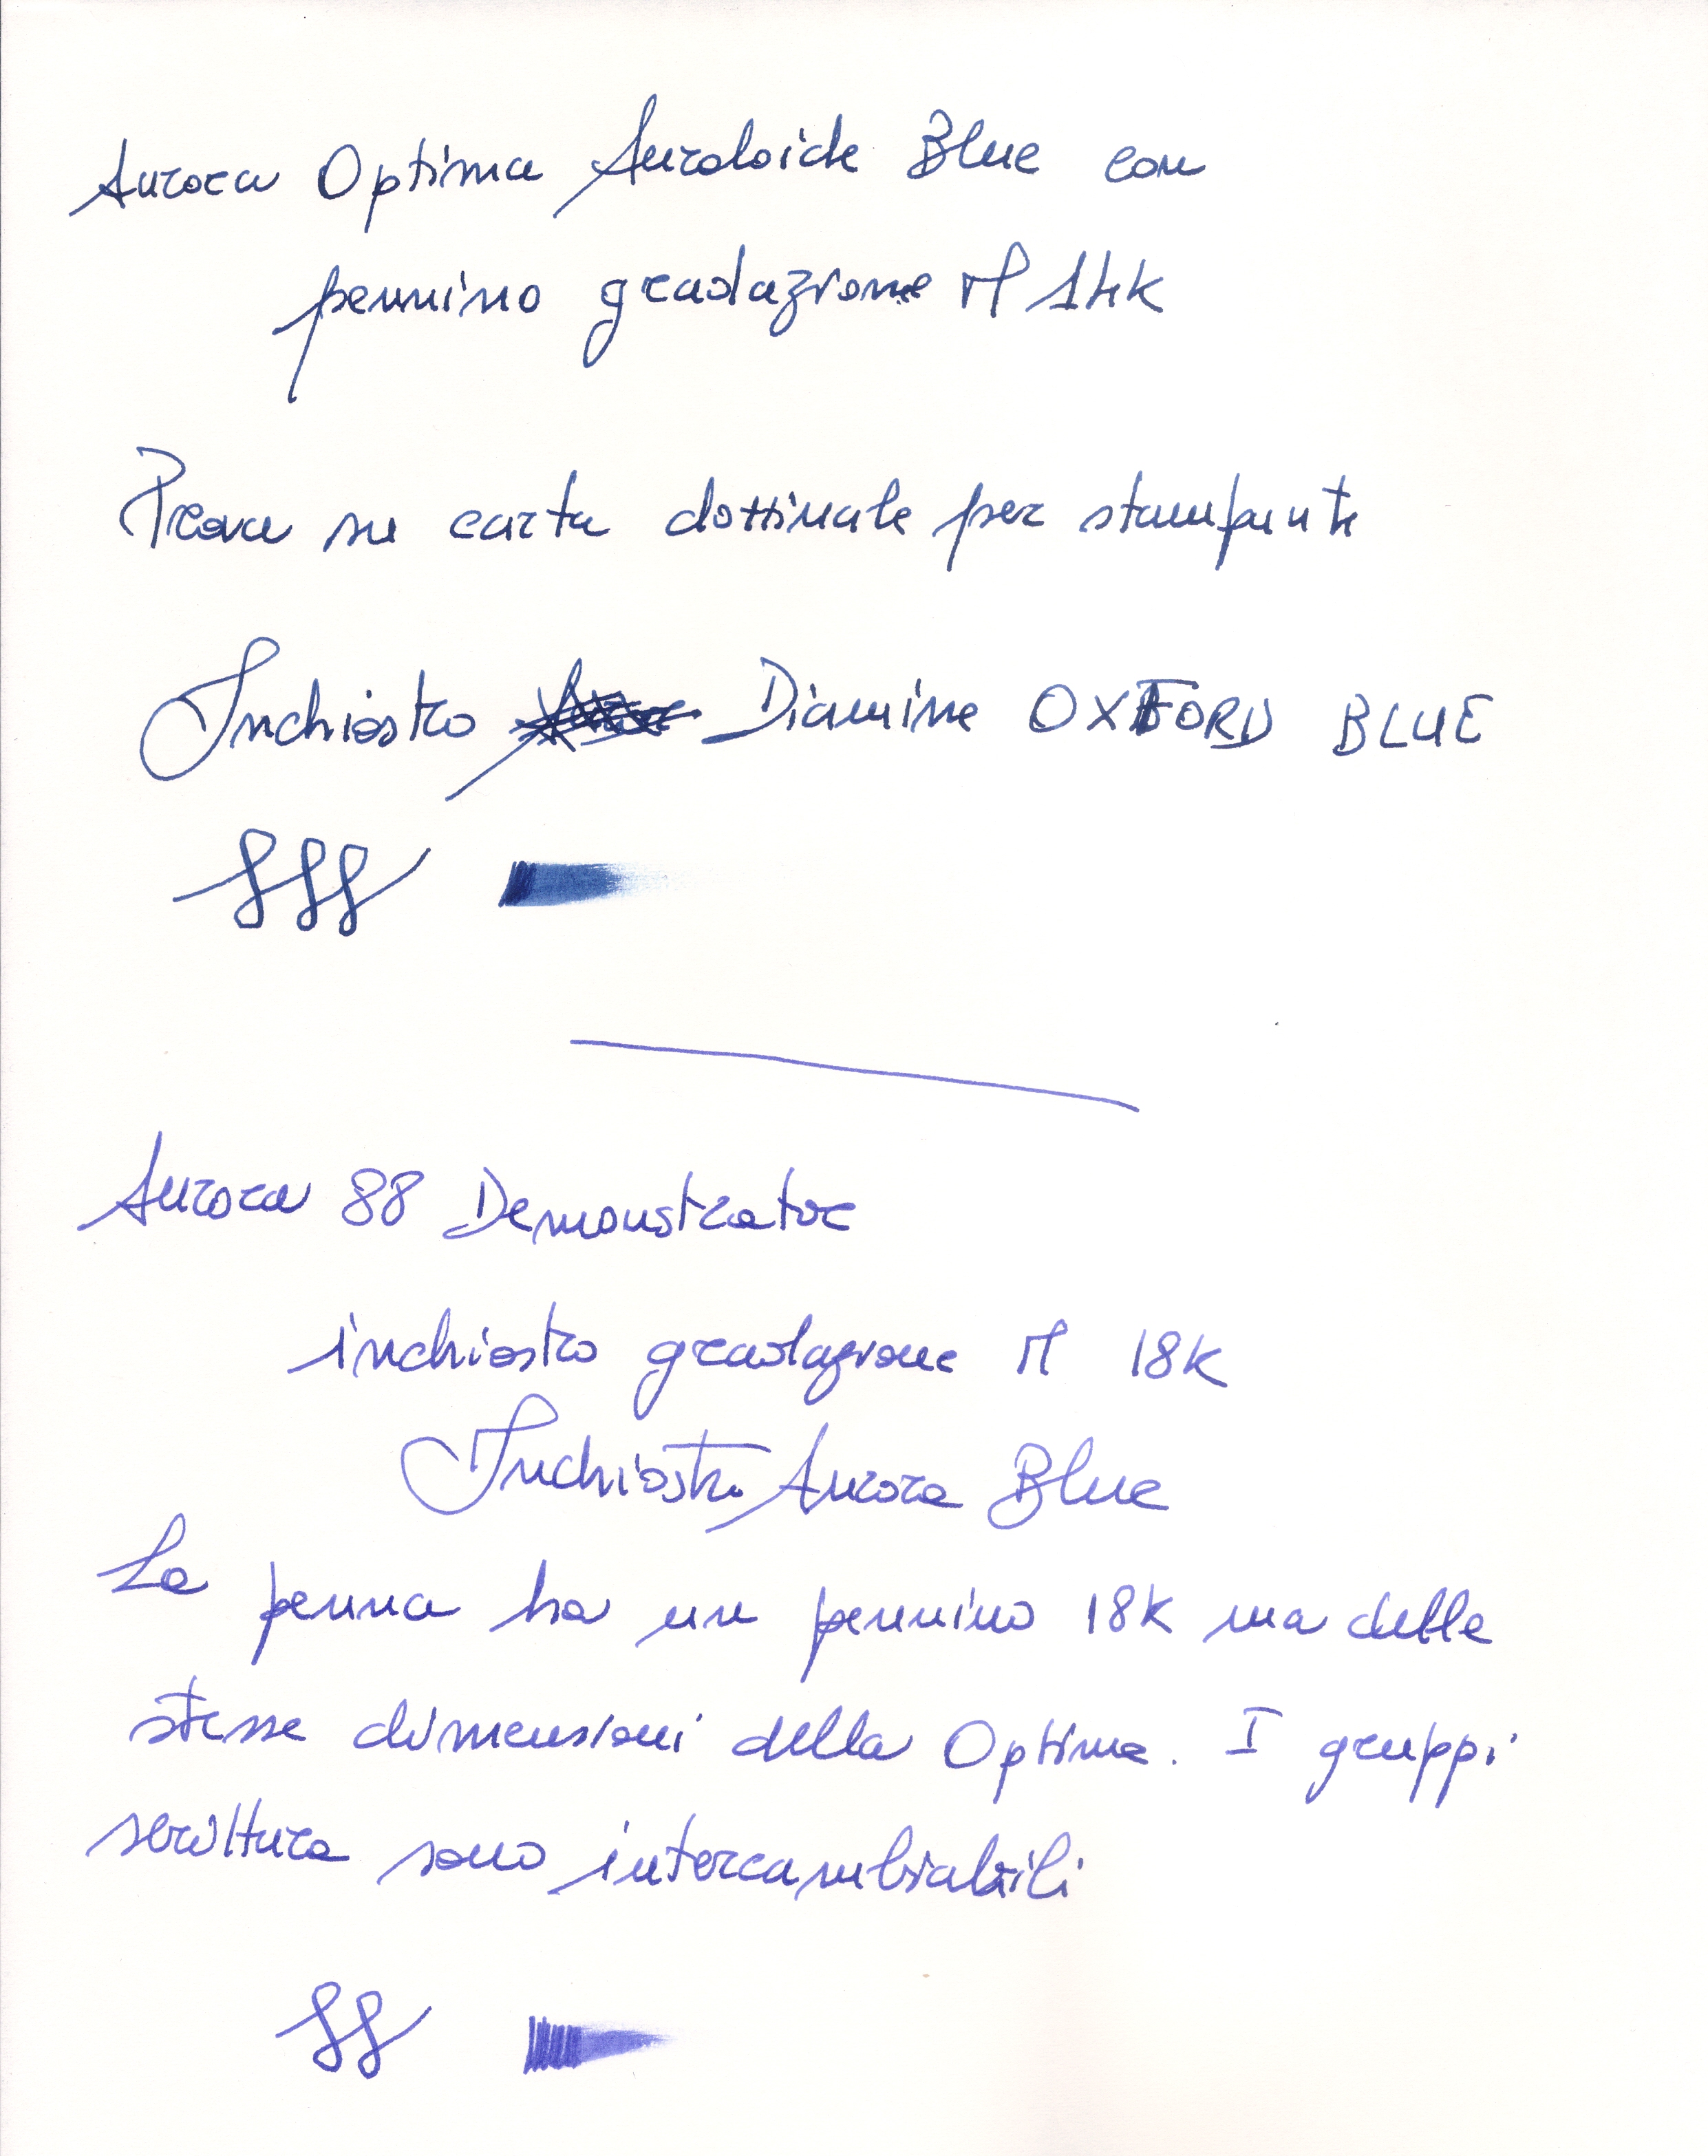 Aurora Optima Auroloide Blue con
pennino gradazione M 14k
Prova su carta dottinale per stampante
Inchiostro Diamine OXFORD BLUE
Aurora 88 Demonstrator
inchiostro gradazione M 18k
Inchiostro Aurora Blue
La penna ha un pennino 18k ma delle
stesse dimensioni della Optima. I gruppi
scrittura sono intercambiabili